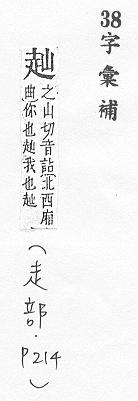 38字彙補
赸
之山切音詀北西廂
曲你也赸我也赸
（走部．P214）